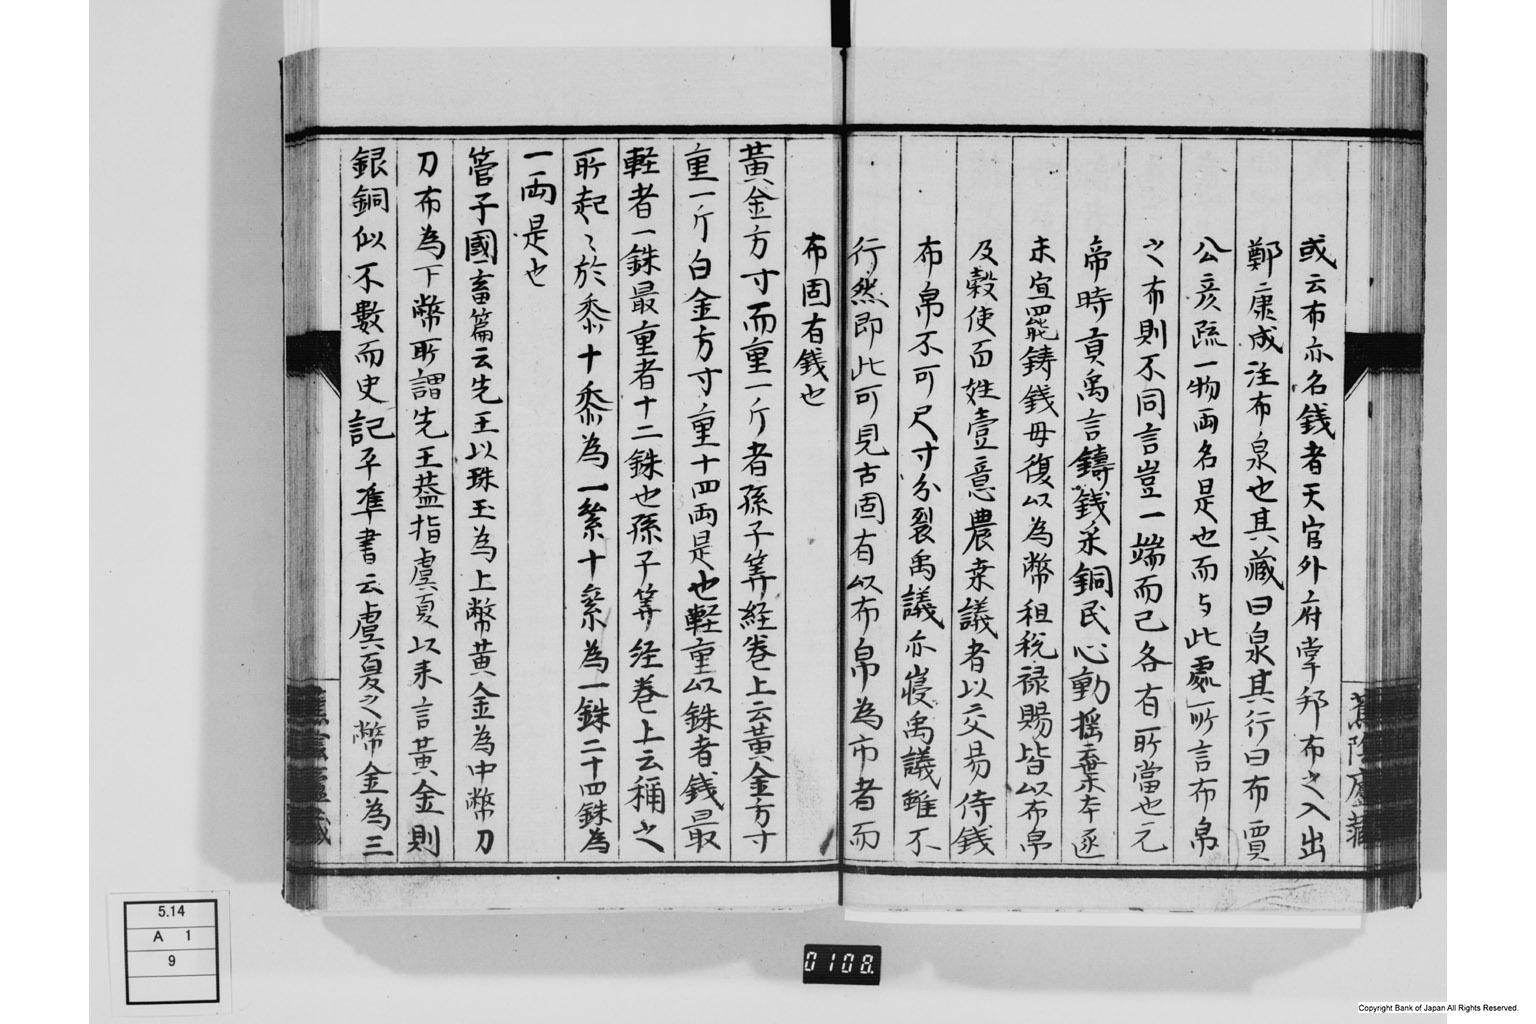 或云布亦名錢者天官外府掌邦布之入出
鄭康成注布泉也其藏曰泉其行曰布賈
公彦疏一物兩名是也而与此處所言布帛
之布則不同言豈一端而已各有所當也元
帝時貢禹言鑄錢采銅民心動揺棄本逐
末宜罷鑄錢毋復以為幣租税禄賜皆以布帛
及穀使百姓壹意農桒議者以交易待錢
布帛不可尺寸分裂禹議亦寝禹議雖不
行然即此可見古固有以布帛為市者而
布固有錢也
黃金方寸而重一斤者孫子筭経巻上云黃金方寸
重一斤白金方寸重十四兩是也軽重以銖者錢最
軽者一銖最重者十二銖也孫子筭经巻上云稱之
所起〻於黍十黍為一絫十絫為一銖二十四銖為
一兩是也
管子國畜篇云先王以珠玉為上幣黄金為中幣刀
刀布為下幣所謂先王葢指虞夏以来言黃金則
銀銅似不數而史記平凖書云虞夏之幣金為三
蕉陰廬藏
5.14
A 1
9
0108.
Copyright Bank of Japan All Rights Reserved.